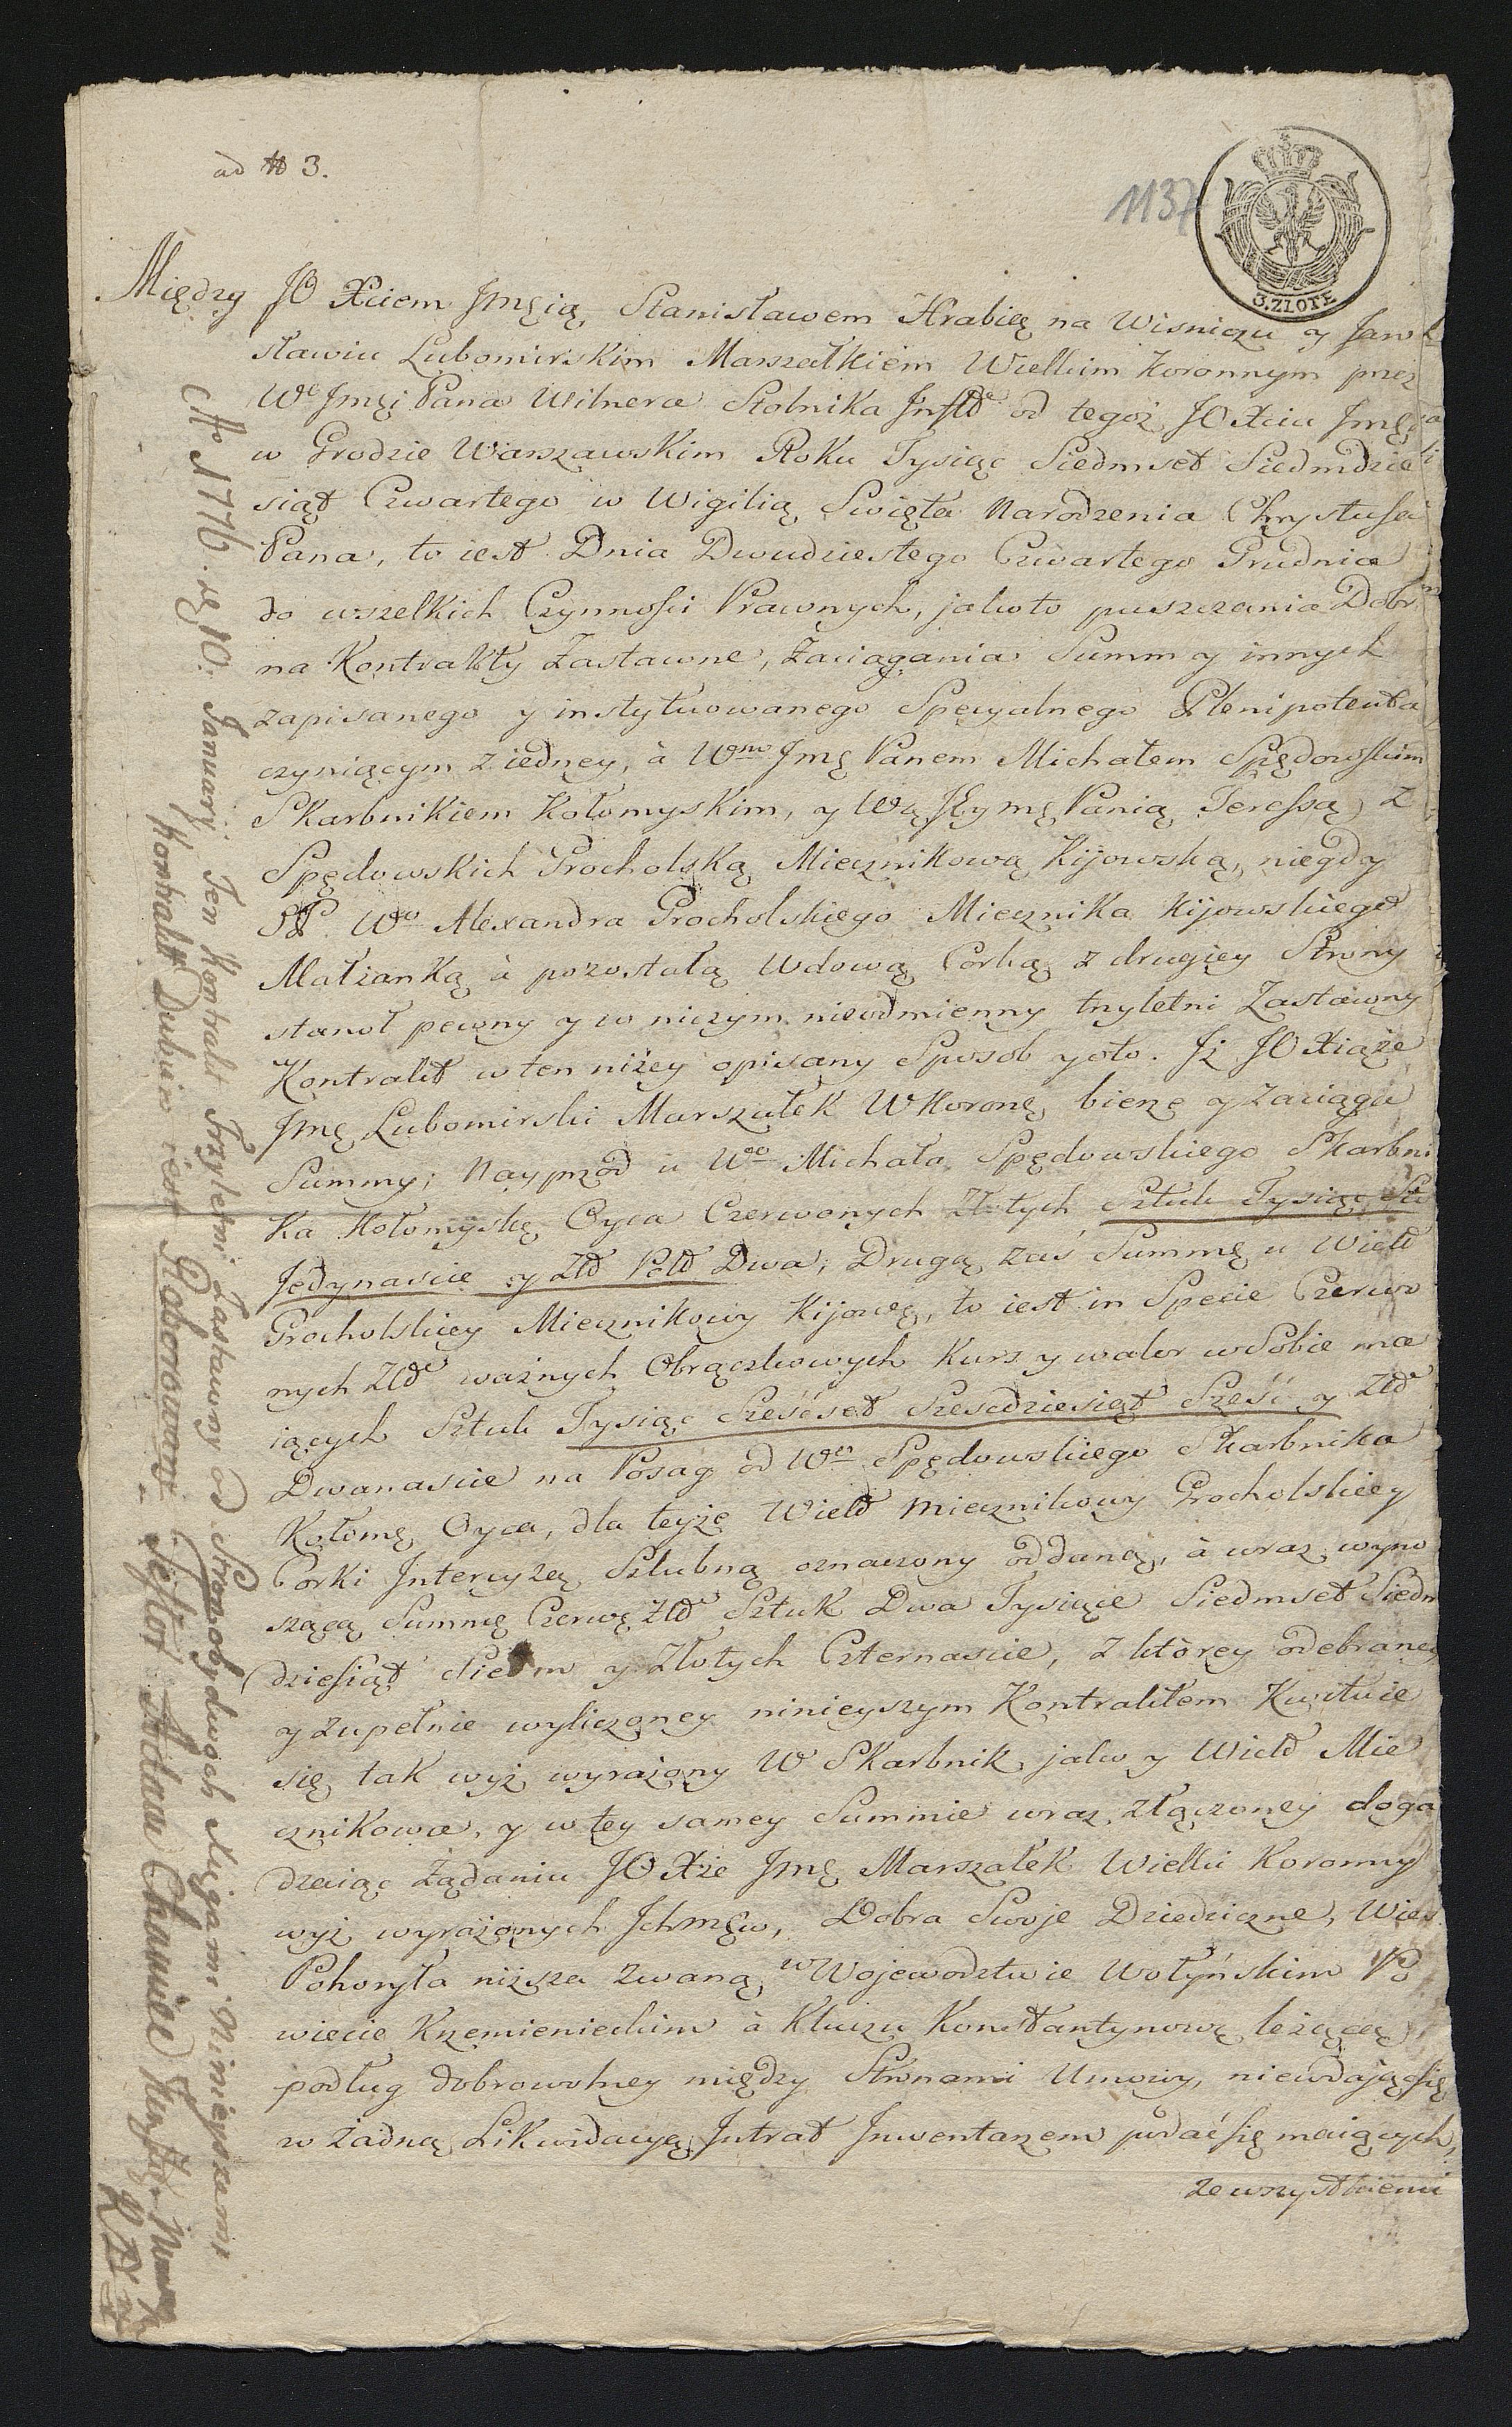 ad N 3.
1137
3. ZŁOTE
Między JO Xciem Jmcią Stanisławem Hrabią na Wisniczu y Jaro
sławiu Lubomirskim Marszałkiem Wielkim Koronnym przez
We Jmci Pana Wilnera Stolnika Infld od tegoż JO Xcia Jmci
w Grodzie Warszawskim Roku Tysiąc Siedmset Siedmdzie
siąt Czwartego w Wigilią Swięta Narodzenia Chrystusa
Pana, to iest Dnia Dwudziestego Czwartego Grudnia
do wszelkich Czynnosci Prawnych, jakoto puszczania Dobr
na Kontrakty Zastawne, Zaciągania Summ y innych
zapisanego y instytuowanego Specyalnego Plenipotenta
czyniącym z iedney, à Wmo Jmę Panem Michałem Spędowskim
Skarbnikiem Kołomyskim, y Wą JEymę Panią Teressą z
Spędowskich Grocholską Miecznikową Kijowską, niegdy
SP. Wo Alexandra Grocholskiego Miecznika Kijowskiego
Małżanką à pozostałą Wdową Corką z drugiey Strony
stanoł pewny y w niczym nieodmienny trzyletni Zastawny
Kontrakt w ten niżey opisany Sposob yoto. Jż JO Xiąże
Jmę Lubomirski Marszałek WKoronę bierze y zaciąga
Summy; Nayprzod u Wgo Michała Spędowskiego Skarbni
ka Kołomyskę Oyca Czerwonych Złotych Sztuk Tysiąc Sto
Jedynascie y Złd Pold Dwa; Drugą zaś Summę u Wield
Grocholskiey Miecznikowy Kijowę, to iest in Specie Czerwo
nych Złd ważnych Obrączkowych Kurs y walor w Sobie ma
iących Sztuk Tysiąc Sześćset Szescdziesiąt Sześć y Złd
Dwanascie na Posag od Wgo Spędowskiego Skarbnika
Kołomę Oyca, dla teyże Wield Miecznikowy Grocholskiey
Corki Intercyzą Szlubną oznaczony oddaną, à wraz wyno
szącą Summę Czerwę Złd Sztuk Dwa Tysiące Siedmset Siedm
dziesiąt Siedm y Złotych Czternascie, z którey odebraney
y zupełnie wyliczoney ninieyszym Kontraktem Kwituie
się tak wyż wyrażony W Skarbnik jako y Wield Mie
cznikowa, y w tey samey Summie wraz złączoney doga
dzaiąc Żądaniu JO Xże Jmę Marszałek Wielki Koronny
wyż wyrażonych Ichmęw, Dobra Swoje Dziedziczne, Wieś
Pohoryła niższa zwaną w Wojewodztwie Wołyńskim Po
wiecie Krzemienieckim à Kluczu Konstantynowę leżącą
podług dobrowolney między Stronami Umowy, niewdając się
w żadną Likwidacyą Intrat Inwentarzem podać się maiących,
ze wszystkiemi
Ao 1776. de 10. Januarij Ten Kontrakt Trzyletni Zastawny od Stron obydwoch Xięgami Ninieyszemi
Kontrakt Dubie iest Roborowany. Nestor Adam Chamiec